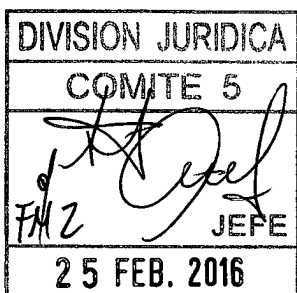 DIVISION JURIDICA
COMITE 5
JEFE
25 FEB. 2016